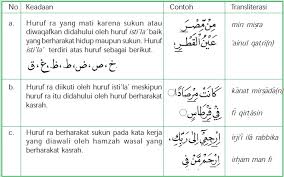 No Keadaan Contoh Transliterasi
a. Huruf ra yang mati karena sukun atau
diwaqafkan didahului oleh huruf isti'la' baik
yang berharakat hidup maupun sukun. Huruf
isti'la' terdiri atas huruf sebagai berikut.
خ، ص، ض، ط، ظ، غ، ق
مِنْ مِصْرَ
عَيْنَ الْقِطْرِ
min miṣra
'ainul qatri(n)
b. Huruf ra diikuti oleh huruf isti'la' meskipun
huruf ra itu didahului oleh huruf berharakat
kasrah.
كَانَتْ مِرْصَادًا
فِيْ قِرْطَاسٍ
kānat mirṣāda(n)
fī qirṭāsin
c. Huruf ra berharakat sukun pada kata kerja
yang diawali oleh hamzah wasal yang
berharakat kasrah.
اِرْجِعِيْٓ اِلٰى رَبِّكِ
اِرْحَمْ مَنْ فِى
irji'ī ilā rabbika
irḥam man fi